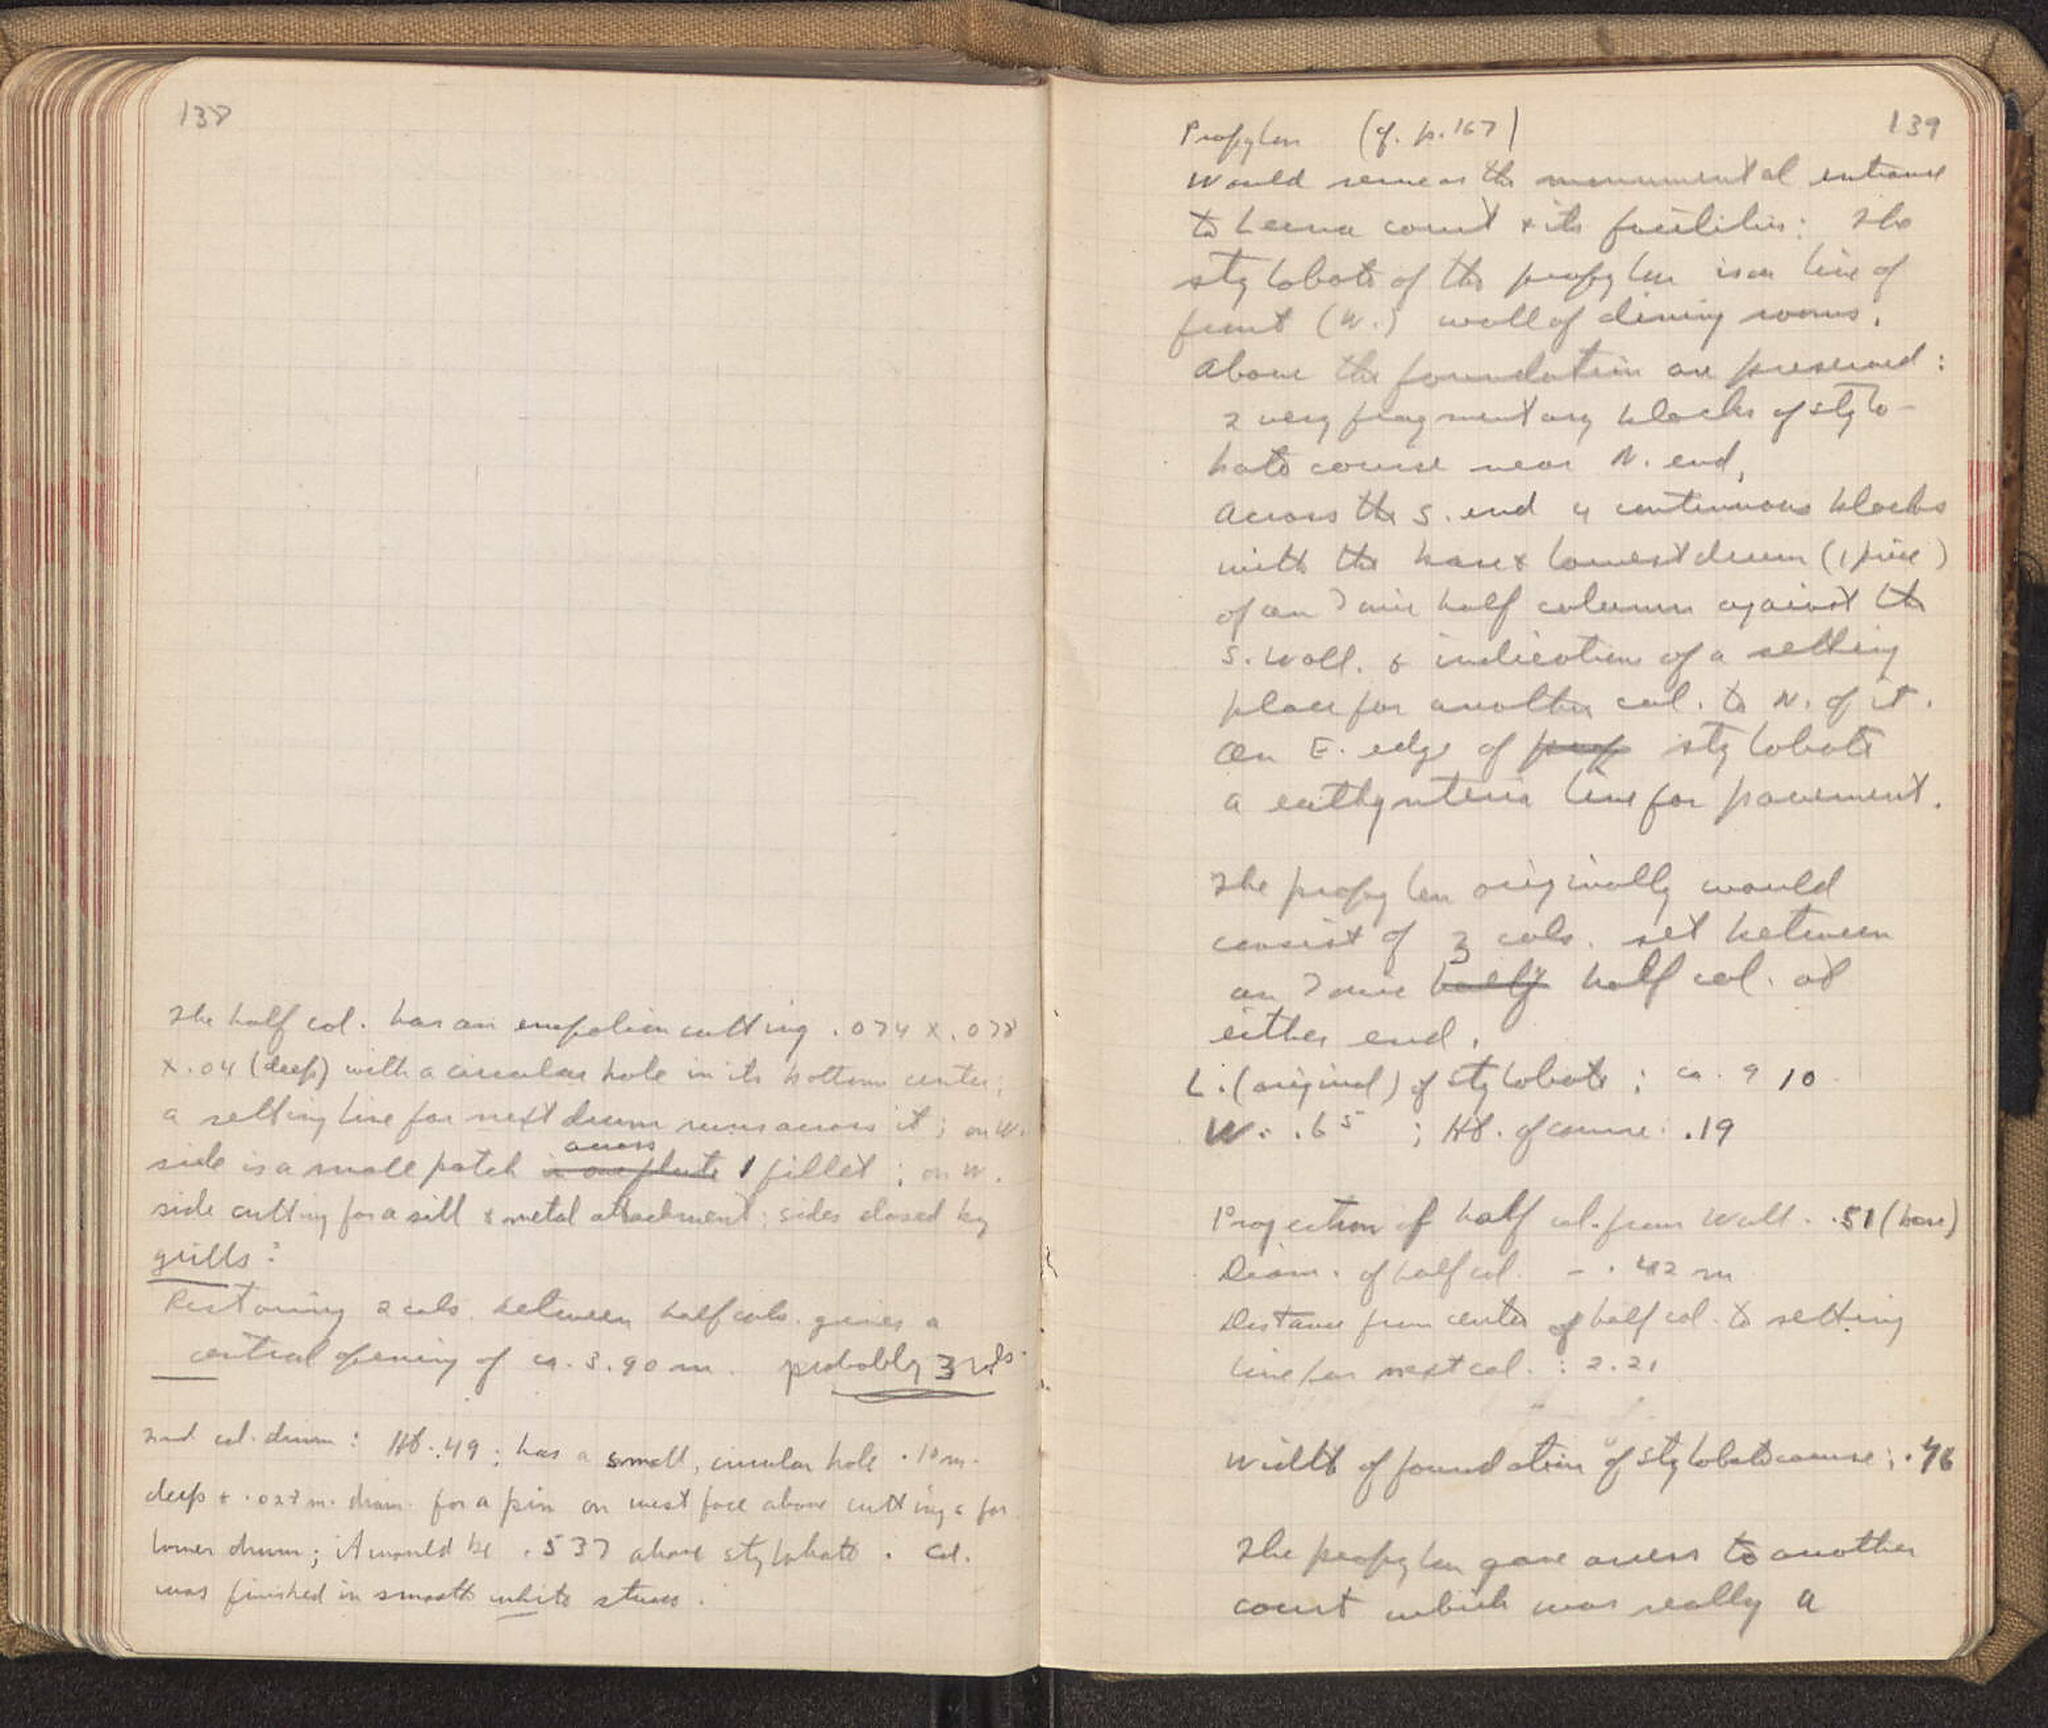 138
The half col. has an empolion cutting .074 x .078
x .04 (deep) with a circular hole in its bottom center;
a setting line for next drum runs across it; on W.
side is a small patch in one flute across 1 fillet; on W.
side cutting for a sill & metal attachment; sides closed by
grills?
Restoring 2 cols. between half cols. gives a
central opening of ca. 3.90 m. probably 3 cols.
2nd col. drum: Ht. .49; has a small, circular hole .10 m.
deep & .027 m. diam. for a pin on west face above cuttings for
lower drum; it would be .537 above stylobate. Col.
was finished in smooth white stucco.
139
Propylon (cf. p. 167)
Would serve as the monumental entrance
to Lerna court & its facilities: The
stylobate of the propylon is on line of
front (W.) wall of dining rooms.
Above the foundation are preserved:
2 very fragmentary blocks of stylo-
bate course near N. end,
Across the S. end 4 continuous blocks
with the base & lowest drum (1 piece)
of an Ionic half column against the
S. wall. & indication of a setting
place for another col. to N. of it.
On E. edge of prop stylobate
a euthynteria line for pavement.
The propylon originally would
consist of 3 cols. set between
an Ionic half col. at
either end.
L. (original) of stylobate: ca. 9 10
W. .65; Ht. of course: .19
Projection of half col. from wall. .51 (base)
Diam. of half col. - .42 m
Distance from center of half col. to setting
line for next col.: 2.21
Width of foundation of stylobate course: .76
The propylon gave access to another
court which was really a